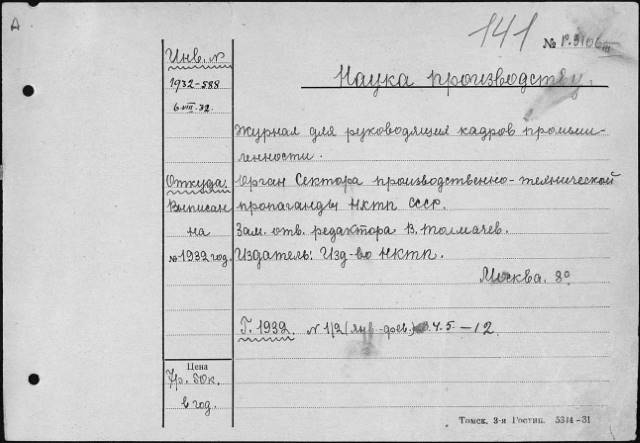 А
141
№ Р.3106 III
Инв. N
1932-588
6 VIII 32.
Наука производству.
Журнал для руководящих кадров промыш-
ленности.
Откуда. Орган Сектора производственно-технической
Выписан пропаганды НКТП СССР.
на Зам. отв. редактора В. Толмачев.
№ 1932 год. Издатель: Изд-во НКТП.
Москва. 8°
Г. 1932. N 1/2 (янв.-фев.) 3.4.5-12.
Цена
7р. 50к.
в год.
Томск. 3-я Гостип. 5344-31